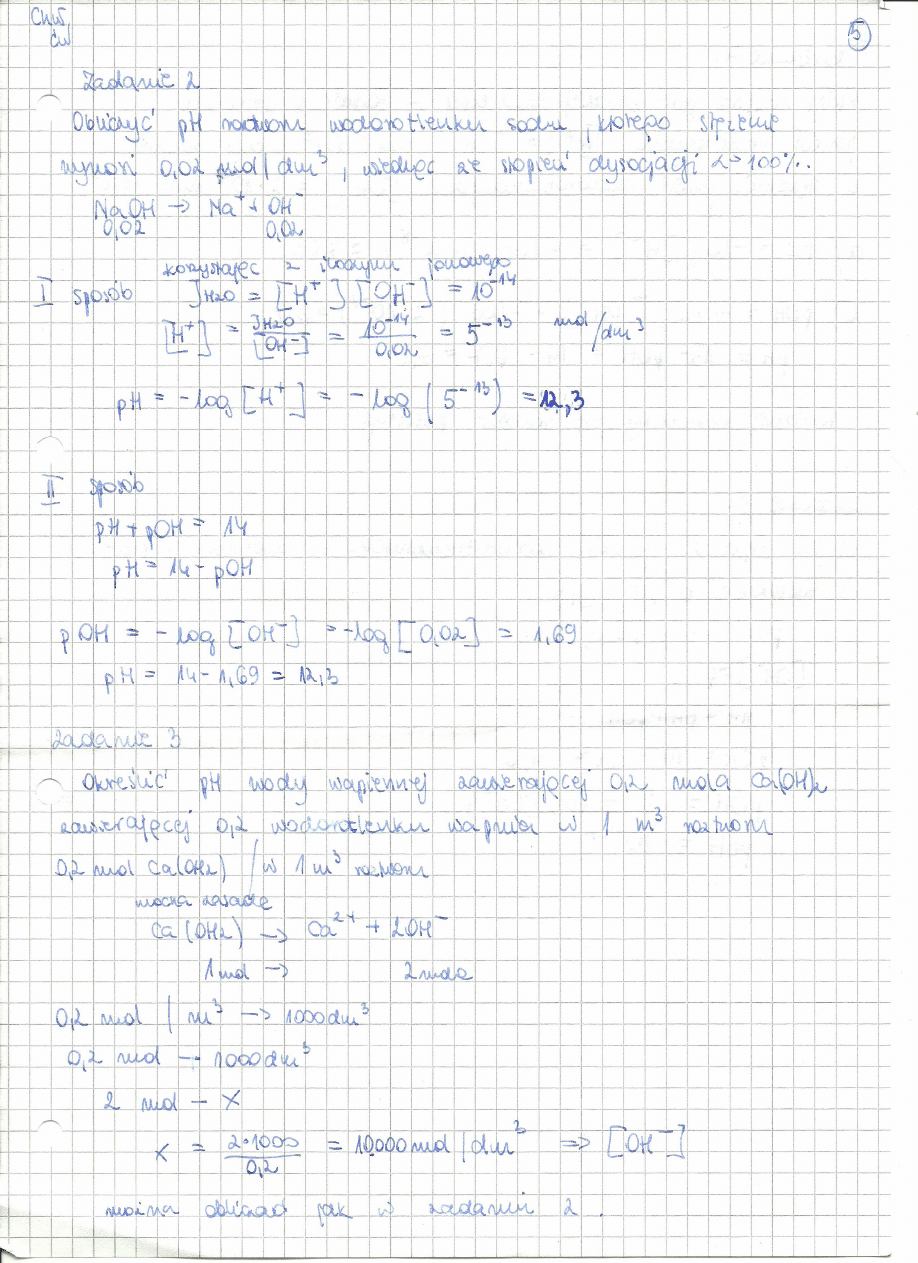 Chw.
ćw
5
Zadanie 2
Obliczyć pH roztworu wodorotlenku sodu, którego stężenie
wynosi 0,02 mol/dm³, wiedząc że stopień dysocjacji α = 100%.
NaOH → Na⁺ + OH⁻
0,02 0,02
korzystając z iloczynu jonowego
I sposób J H₂O = [H⁺] [OH⁻] = 10⁻¹⁴
[H⁺] = J H₂O / [OH⁻] = 10⁻¹⁴ / 0,02 = 5⁻¹³ mol/dm³
pH = -log [H⁺] = -log (5⁻¹³) = 12,3
II sposób
pH + pOH = 14
pH = 14 - pOH
pOH = -log [OH⁻] = -log [0,02] = 1,69
pH = 14 - 1,69 = 12,3
Zadanie 3
Określić pH wody wapiennej zawierającej 0,2 mola Ca(OH)₂
zawierającej 0,2 wodorotlenku wapnia w 1 m³ roztworu
0,2 mol Ca(OH₂) / w 1 m³ roztworu
mocna zasada
Ca(OH₂) → Ca²⁺ + 2OH⁻
1 mol → 2 mola
0,2 mol / m³ → 1000 dm³
0,2 mol → 1000 dm³
2 mol - x
x = 2·1000 / 0,2 = 10000 mol/dm³ ⇒ [OH⁻]
można obliczać jak w zadaniu 2.